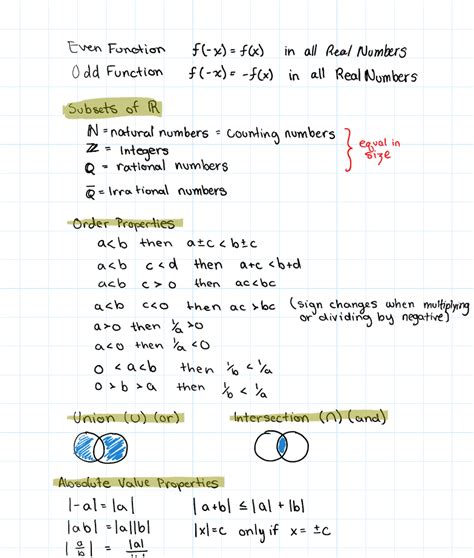 Even Function f(-x) = f(x) in all Real Numbers
Odd Function f(-x) = -f(x) in all Real Numbers
Subsets of ℝ
ℕ = natural numbers = counting numbers
ℤ = Integers
ℚ = rational numbers
equal in size
ℚ̅ = Irrational numbers
Order Properties
a<b then a±c < b±c
a<b c<d then a+c < b+d
a<b c>0 then ac<bc
a<b c<0 then ac >bc (sign changes when multiplying or dividing by negative)
a>0 then 1/a >0
a<0 then 1/a <0
0 < a<b then 1/b < 1/a
0 > b > a then 1/b < 1/a
Union (∪) (or) Intersection (∩) (and)
Absolute Value Properties
|-a| = |a| |a+b| ≤ |a| + |b|
|ab| = |a||b| |x|=c only if x = ±c
|a/b| = |a|